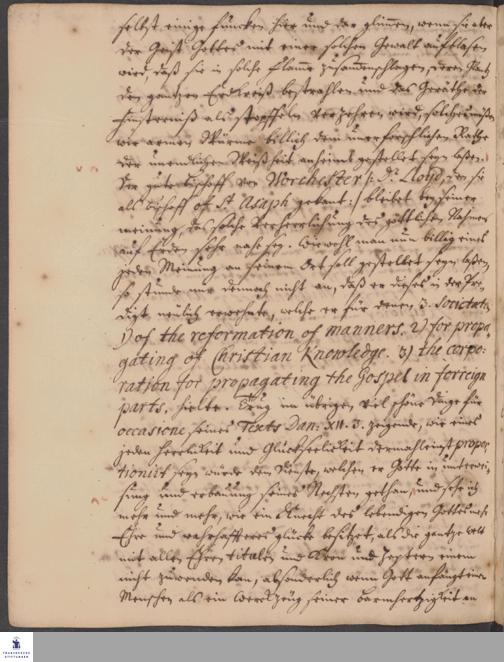 selbst einige Funcken hier und da glimmen, wenn sie aber
der Geist Gottes mit einer solchen Gewalt aufblasen
wird, daß sie in solche Flamme zusammenschlagen, deren Glantz
den gantzen Erdkreiß bestrahlen und das Geräthe der
Finsterniß als Stoppeln verzehren wird, solches müßen
wir armen Würme billich dem unerforschlichen Rathe
der unendlichen Weißheit anheim gestellet seyn laßen.
Der gute Bischoff von Worchester /: Dr. Lloyd, den sie
als Bischoff of St Asaph gekant :/ bleibet bey seiner
meinung, daß solche Verherrlichung des göttlichen Nahmens
auf Erden sehr nahe sey. Wiewohl man nun billig eines
jeden Meinung an seinem Ort soll gestellet seyn laßen,
so stunde mir dennoch wohl an, daß er dieses in der Pre-
digt neulich erwehnte, welche er für denen 3. Societaten
1) of the reformation of manners. 2) for propa-
gating of Christian Knowledge. 3) the corpo-
ration for propagating the Gospel in forreign
parts, hielte. Trug im übrigen viel schöne Dinge für
occasione seines Texts Dan: XII. 3. zeigende, wie eines
jeden Herrlichkeit und Glückseeligkeit dermahleinst propor-
tionirt seyn würde dem Dienste, welchen er Gotte in unterwei-
sung und erbauung seines Nechsten gethan, und sehe ich
mehr und mehr, wie ein Knecht des lebendigen Gottes mehr
Ehre und wahrhafteres glücke besitzet, als die gantze welt
mit allen Ehren titulen und Cron und Zeptern einem
nicht zuwenden kan, absonderlich wenn Gott anhängt einen
Menschen als ein Werckzeug seiner Barmhertzigkeit an
FRANCKESCHE
STIFTUNGEN